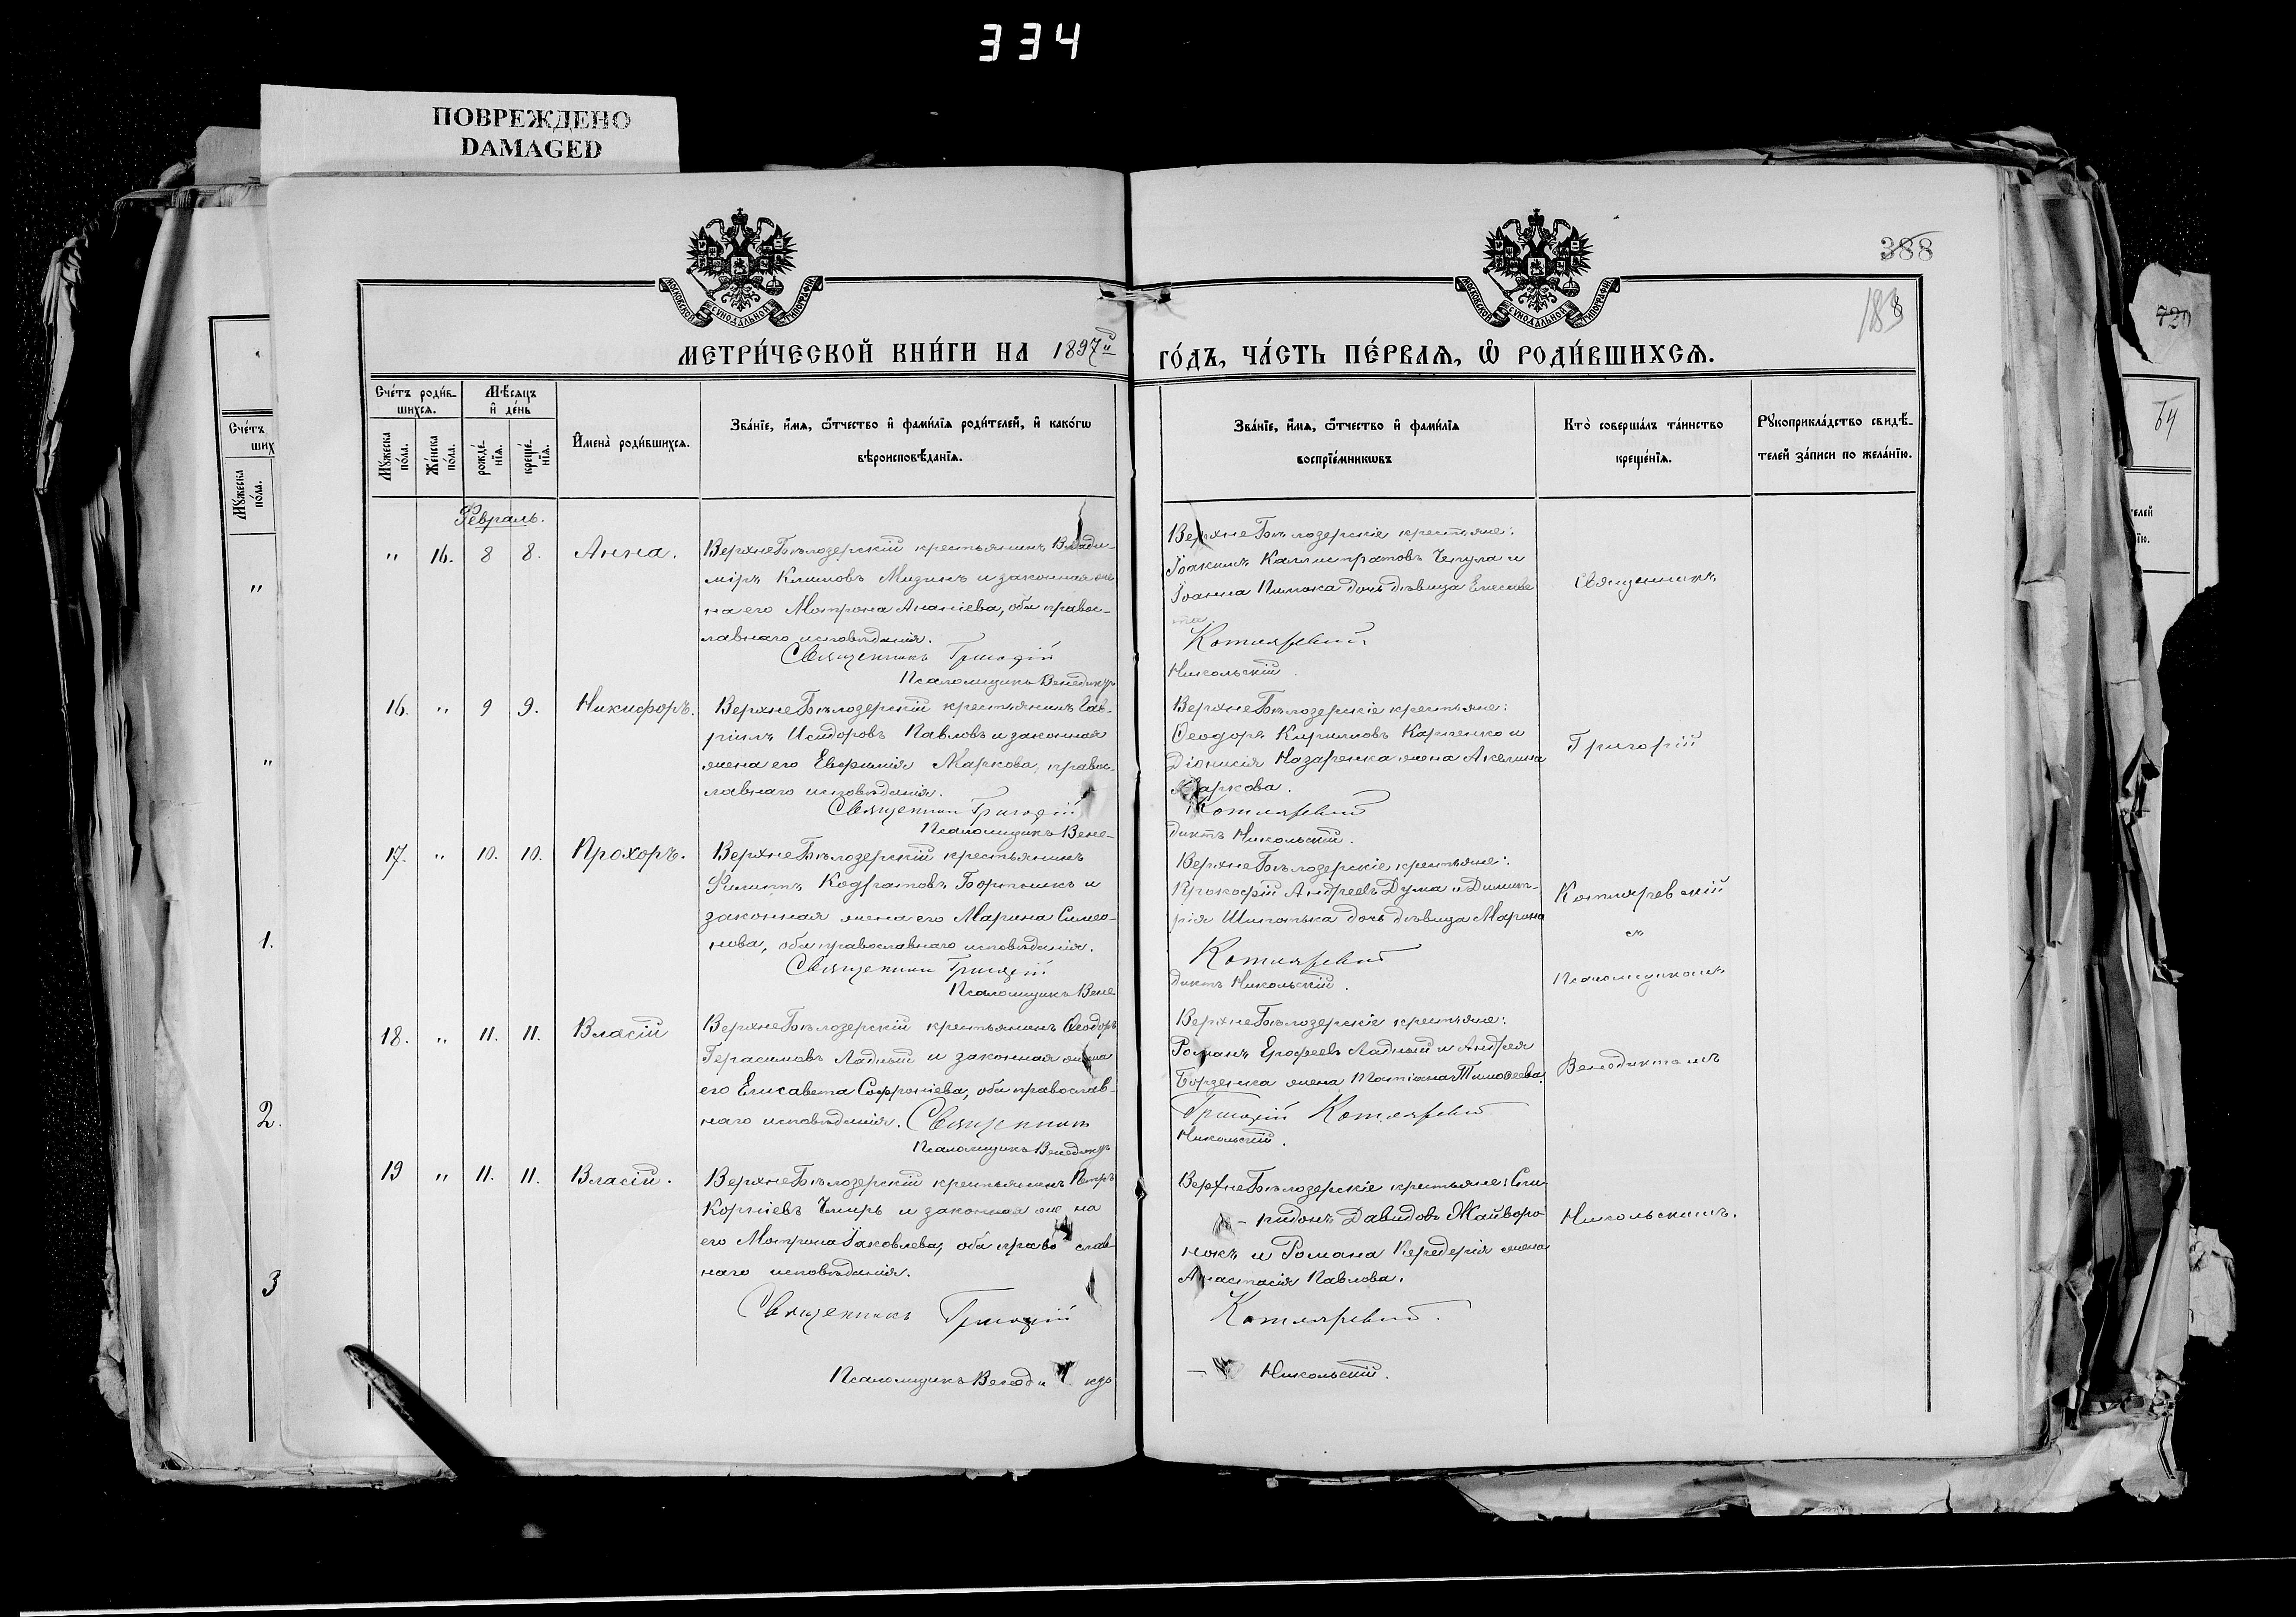 334
ПОВРЕЖДЕНО
DAMAGED
388
188
729
МОСКОВСКОЙ СѴНОДАЛЬНОЙ ТИПОГРАФІИ
МОСКОВСКОЙ СѴНОДАЛЬНОЙ ТИПОГРАФІИ
МЕТРИ́ЧЕСКОЙ КНИ́ГИ НА 1897й
ГО́ДЪ, ЧА́СТЬ ПЕ́РВАѦ, Ѽ РОДИ́ВШИХСѦ.
Сче́тъ роди́в-
шихсѧ.
Мѣ́сѧцъ
и҆ де́нь
Мꙋ́жеска
по́ла.
Же́нска
по́ла.
рожде́-
нїѧ.
креще́-
нїѧ.
И҆мена̀ роди́вшихсѧ.
Зва́нїе, и҆́мѧ, ѿ́тчество и҆ фами́лїѧ роди́телей, и҆ како́гѡ
вѣроисповѣ́данїѧ.
Зва́нїе, и҆́мѧ, ѿ́тчество и҆ фами́лїѧ
воспрїе́мникѡвъ
Кто̀ соверша́лъ та́инство
креще́нїѧ.
Рꙋкоприкла́дство свидѣ́-
телей за́писи по жела́нїю.
Сче́тъ
ших
Мꙋ́жеска
по́ла.
"
"
1.
2.
3
Февраль.
" 16. 8 8. Анна.
ВерхнеБѣлозерскій крестьянинъ Влади-
міръ Климовъ Мизинъ и законная же-
на его Матрона Ананіева, оба правос-
лавнаго исповѣданія.
Священникъ Григорій
Псаломщикъ Венедиктъ
ВерхнеБѣлозерскіе крестьяне:
Іоакимъ Каллистратовъ Чепула и
Іоанна дочь дѣвица Елисаве
та.
Котляревскій
Никольскій
Священникъ
16. " 9 9. Никифоръ.
ВерхнеБѣлозерскій крестьянинъ Гав-
ріилъ Исидоровъ Павловъ и законная
жена его Евфимія Маркова, правос-
лавнаго исповѣданія.
Священникъ Григорій
Псаломщикъ Вене-
ВерхнеБѣлозерскіе крестьяне:
Ѳеодоръ Кириловъ Карпенко и
Діонисія Назаренка жена Акелина
Маркова.
Котляревскій
диктъ Никольскій.
Григорій
17. " 10. 10. Прохоръ.
ВерхнеБѣлозерскій крестьянинъ
Филиппъ Кодратовъ Бортникъ и
законная жена его Марина Симео-
нова, оба православнаго исповѣданія.
Священникъ Григорій
Псаломщикъ Вене
ВерхнеБѣлозерскіе крестьяне:
Прокофій Андреевъ Дума и Димит-
рія дочь дѣвица Марина
Котляревскій
диктъ Никольскій.
Котляревскій
съ
Псаломщикомъ
18. " 11. 11. Власій
ВерхнеБѣлозерскій крестьянинъ Ѳеодоръ
Герасимовъ Ладный и законная жена
его Елисавета Софроніева, оба православ-
наго исповѣданія. Священникъ
Псаломщикъ Венедиктъ
ВерхнеБѣлозерскіе крестьяне:
Романъ Ерофеевъ Ладный и Андрея
Борзенка жена Татіана Тимоѳеева.
Григорій Котляревскій
Никольскій.
Венедиктомъ
19 " 11. 11. Власій.
ВерхнеБѣлозерскій крестьянинъ Петръ
Корніевъ Чмирь и законная же на
его Матрона Іаковлева, оба право слав-
наго исповѣданія.
Священникъ Григорій
Псаломщикъ Венеди ктъ
ВерхнеБѣлозерскіе крестьяне: Спи-
ридонъ Давидовъ Жайворо-
нокъ и Романа жена
Анастасія Павлова.
Котляревскій.
Никольскій.
Никольскимъ.